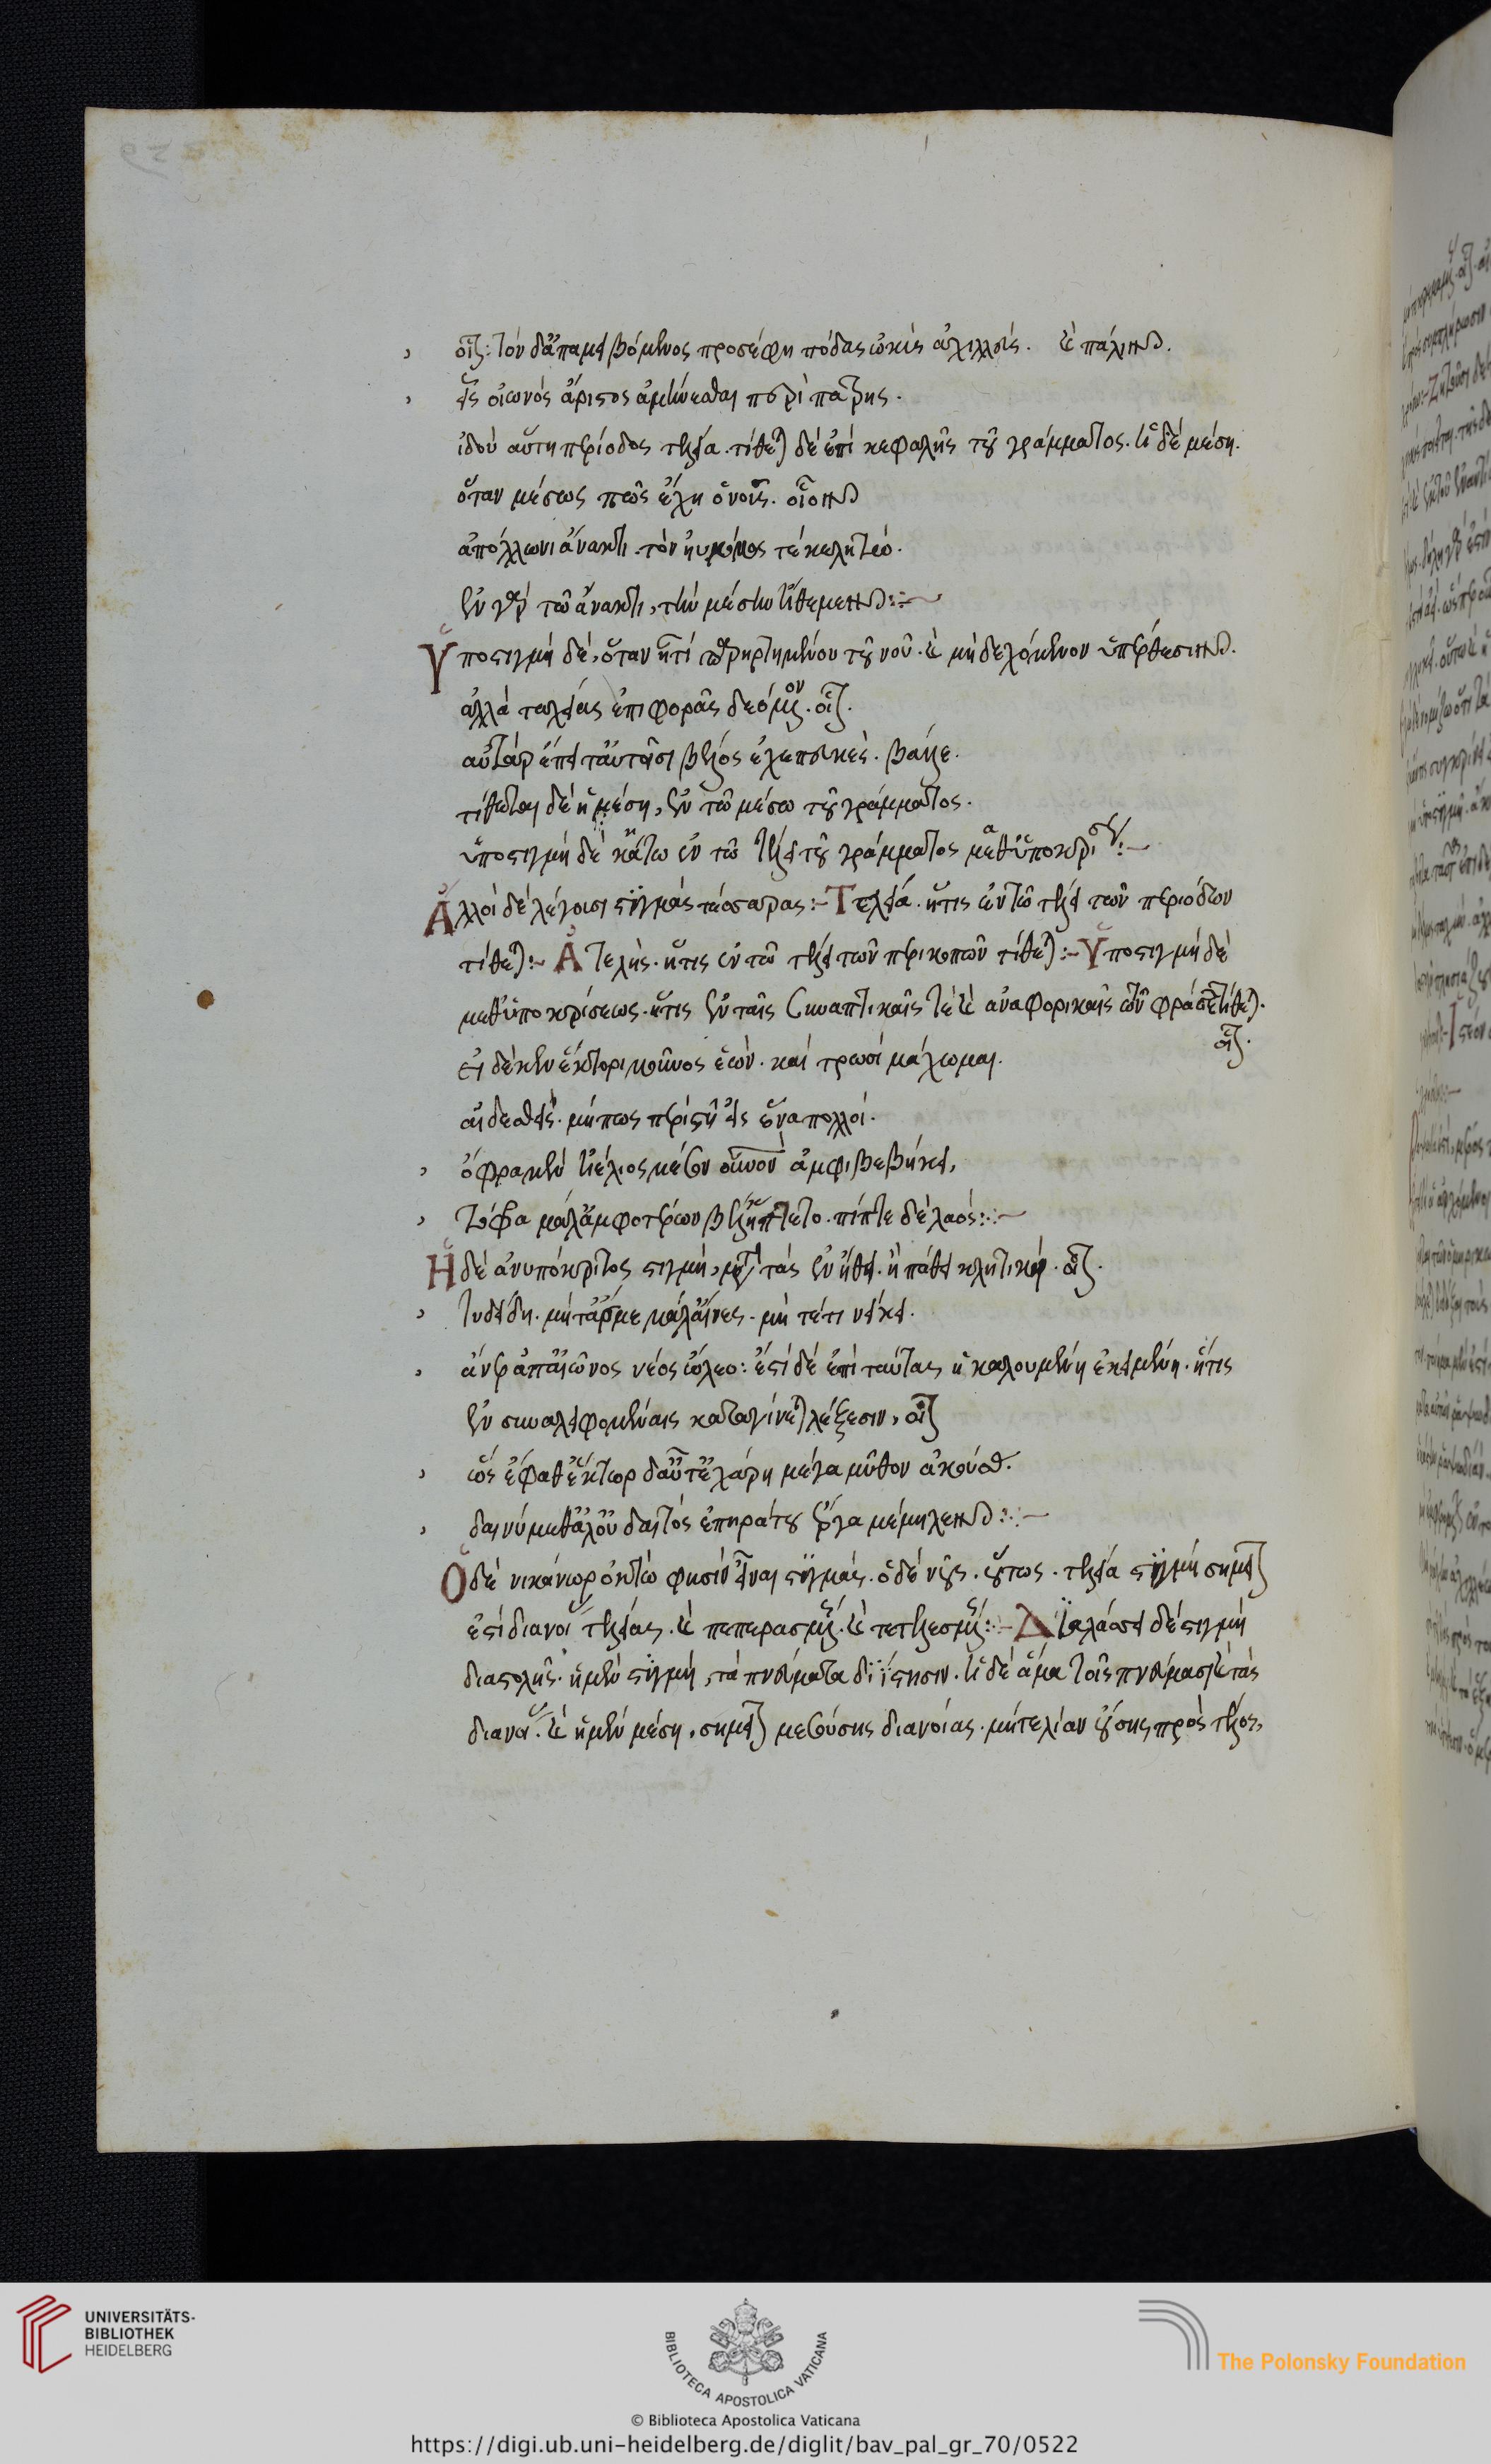 οἷον: τὸν δ' ἀπαμειβόμενος προσέφη πόδας ὠκὺς ἀχιλλεύς. καὶ πάλιν.
εἷς οἰωνὸς ἄριστος ἀμύνεσθαι περὶ πάτρης.
ἰδοὺ αὕτη περίοδος τελεία. τίθεται δὲ ἐπὶ κεφαλῆς τοῦ γράμματος. ἡ δὲ μέση.
ὅταν μέσως πως ἔχῃ ὁ νοῦς. οἷον
ἀπόλλωνι ἄνακτι. τὸν ἠΰκομος τέκε λητώ.
ἐν γὰρ τῷ ἄνακτι, τὴν μέσην τίθεμεν:~
Ὑποστιγμὴ δέ, ὅταν ᾖ τι παρηρτημένον τοῦ νοῦ. καὶ μὴ δεχόμενον ὑπέρθεσιν.
ἀλλὰ ταχείας ἐπιφορᾶς δεόμενον. οἷον.
αὐτὰρ ἔπειτ' αὐτοῖσι βέλος ἐχεπευκὲς. βάλλε.
τίθεται δὲ ἡ μέση, ἐν τῷ μέσω τοῦ γράμματος.
ὑποστιγμὴ δὲ κάτω ἐν τῷ τέλει τοῦ γράμματος μεθ' ὑποκρίσεως:~
Ἄλλοι δὲ λέγουσι στιγμὰς τέσσαρας:~ Τελεία. ἥτις ἐν τῷ τέλει τῶν περιόδων
τίθεται:~ Ἀτελής. ἥτις ἐν τῷ τέλει τῶν περικοπῶν τίθεται:~ Ὑποστιγμὴ δὲ
μεθ' ὑποκρίσεως. ἥτις ἐν ταῖς συναπτικαῖς τὲ καὶ ἀναφορικαῖς τῶν φράσεων τίθεται.
οἷον.
εἰ δέ κεν ἕκτορι μοῦνος ἐὼν. καὶ τρωσὶ μάχωμαι.
αἰδεσθεὶς. μήπως περιστήωσ' ἕνα πολλοί.
ὄφρα μὲν ἠέλιος μέσον οὐρανὸν ἀμφιβεβήκει,
τόφρα μάλ' ἀμφοτέρων βέλε' ἥπτετο. πίπτε δὲ λαός:~
Ἡ δὲ ἀνυπόκριτος στιγμή, μετὰ τὰς ἐν ἤθει. ἢ πάθει κλητικάς. οἷον.
τυδείδη. μήτ' ἄρ με μάλ' αἴνεε. μὴ τέ τι νείκει.
ἄνερ ἀπ' αἰῶνος νέος ὤλεο: ἔστι δὲ ἐπὶ ταύταις ἡ καλουμένη ἐκειμένη. ἥτις
ἐν συναλειφομέναις καταγίνεται λέξεσιν, οἷον
ὣς ἔφαθ' ἕκτωρ δ' αὖτ' ἐχάρη μέγα μῦθον ἀκούσας.
δαινύμεθ' ἀλλ' οὐ δαιτὸς ἐπηράτου ἔργα μέμηλεν:~
Ὁ δὲ νικάνωρ ὀκτὼ φησὶν εἶναι στιγμάς. ὁ δὲ νοῦς. οὕτως. τελεία στιγμὴ σημεῖον
ἐστὶ διανοίας τελείας. καὶ πεπερασμένης. καὶ τετελεσμένης:~ Διαλλάσσει δὲ στιγμὴ
διαστολῆς. ἡ μὲν στιγμὴ, τὰ πνεύματα διΐστησιν. ἡ δὲ ἅμα τοῖς πνεύμασι καὶ τὰς
διανοίας. καὶ ἡ μὲν μέση, σημεῖον μεσούσης διανοίας. μήτε λίαν οὔσης πρὸς τέλος,
UNIVERSITÄTS-
BIBLIOTHEK
HEIDELBERG
BIBLIOTECA APOSTOLICA VATICANA
The Polonsky Foundation
© Biblioteca Apostolica Vaticana
https://digi.ub.uni-heidelberg.de/diglit/bav_pal_gr_70/0522